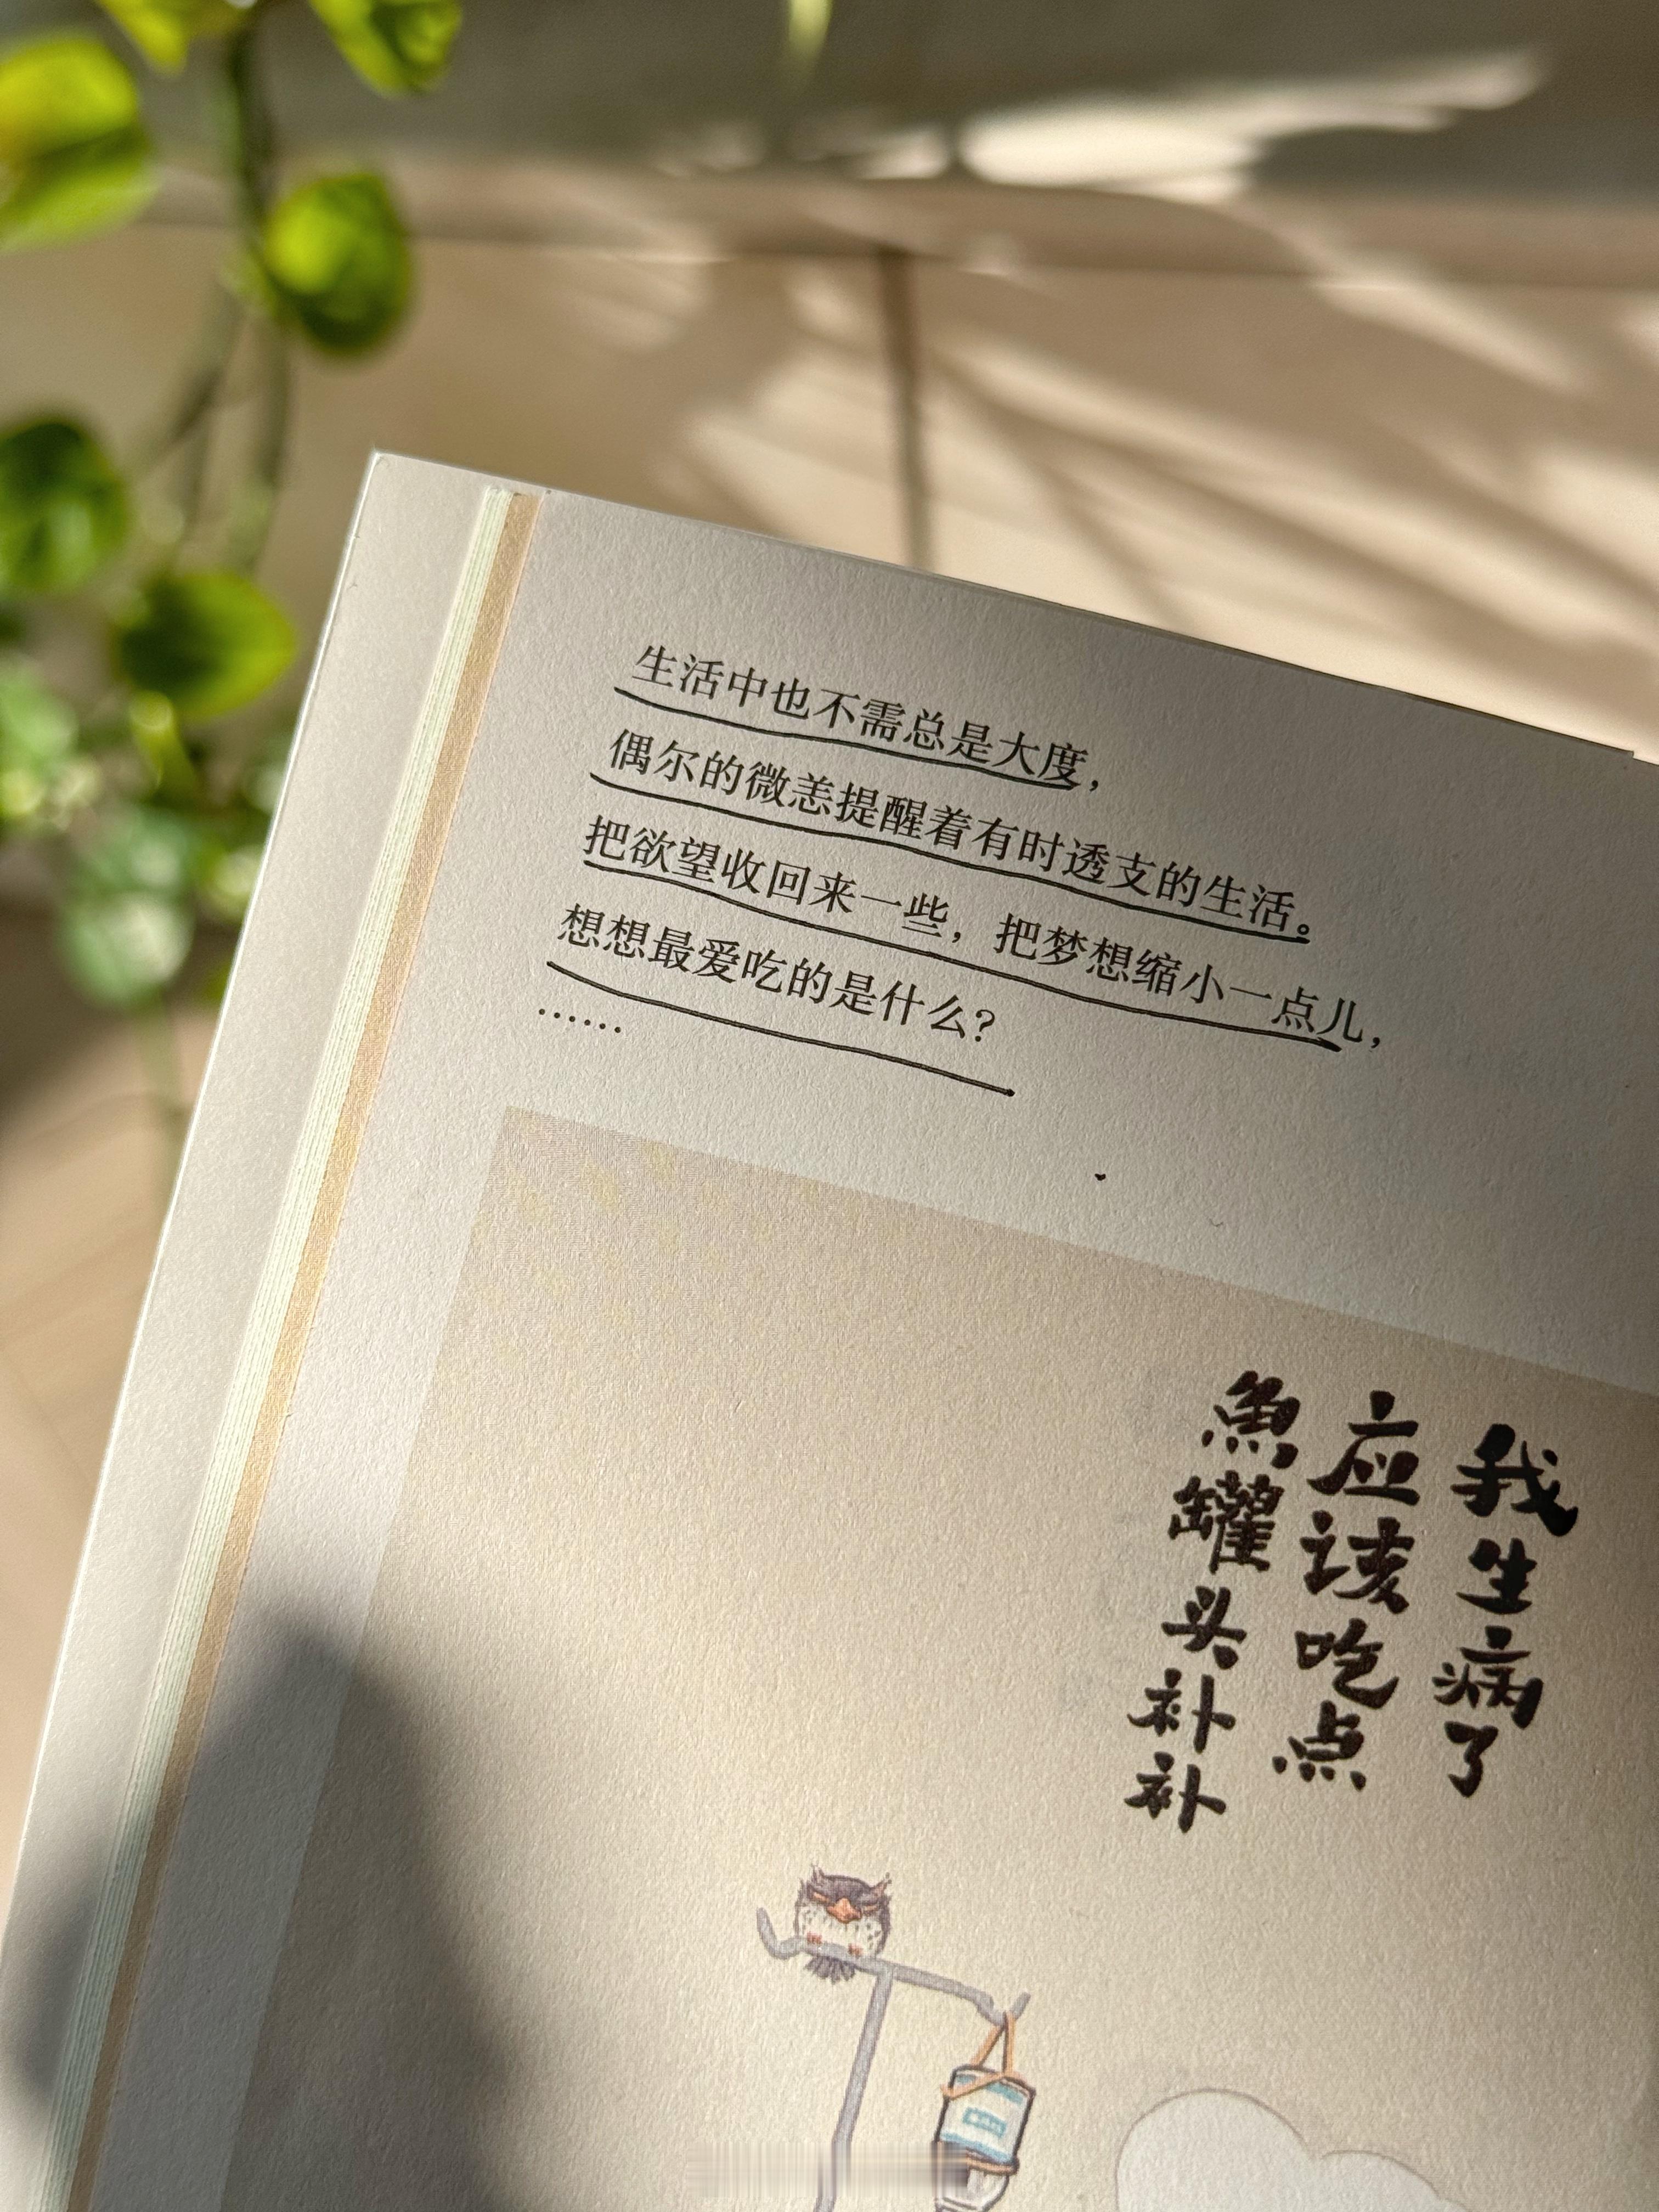 生活中也不需总是大度，
偶尔的微恙提醒着有时透支的生活。
把欲望收回来一些，把梦想缩小一点儿，
想想最爱吃的是什么？
……
我生病了
应该吃点
魚罐头补补